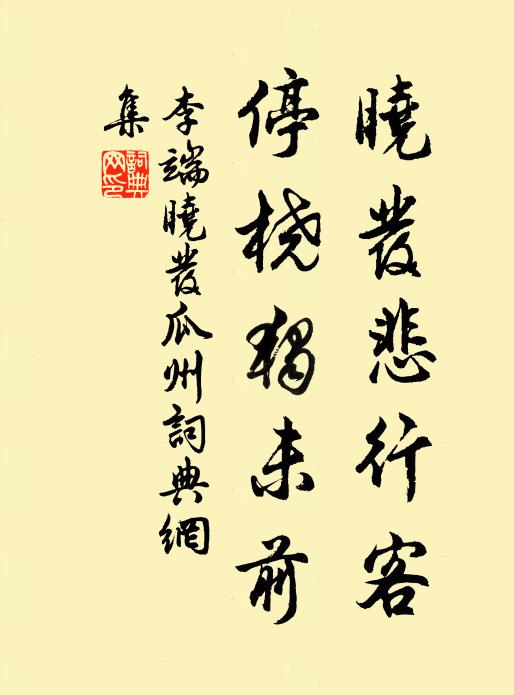 曉發悲行客
停橈獨未前
李端曉發瓜州詞典網
集
詞典網印